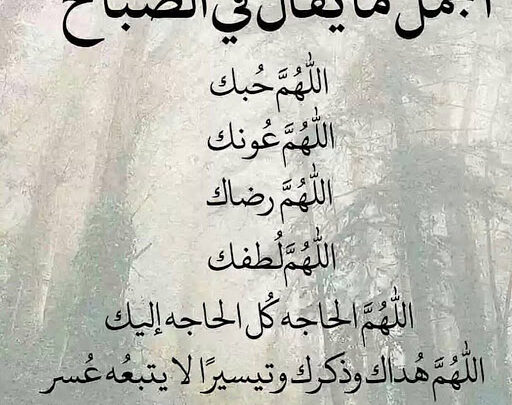 أجمل ما يقال في الصباح
اللّٰهُمَّ حُبك
اللّٰهُمَّ عُونك
اللّٰهُمَّ رضاك
اللّٰهُمَّ لُطفك
اللّٰهُمَّ الحاجه كُل الحاجه إليك
اللّٰهُمَّ هُداك وذكرك وتيسيرًا لا يتبعُه عُسر